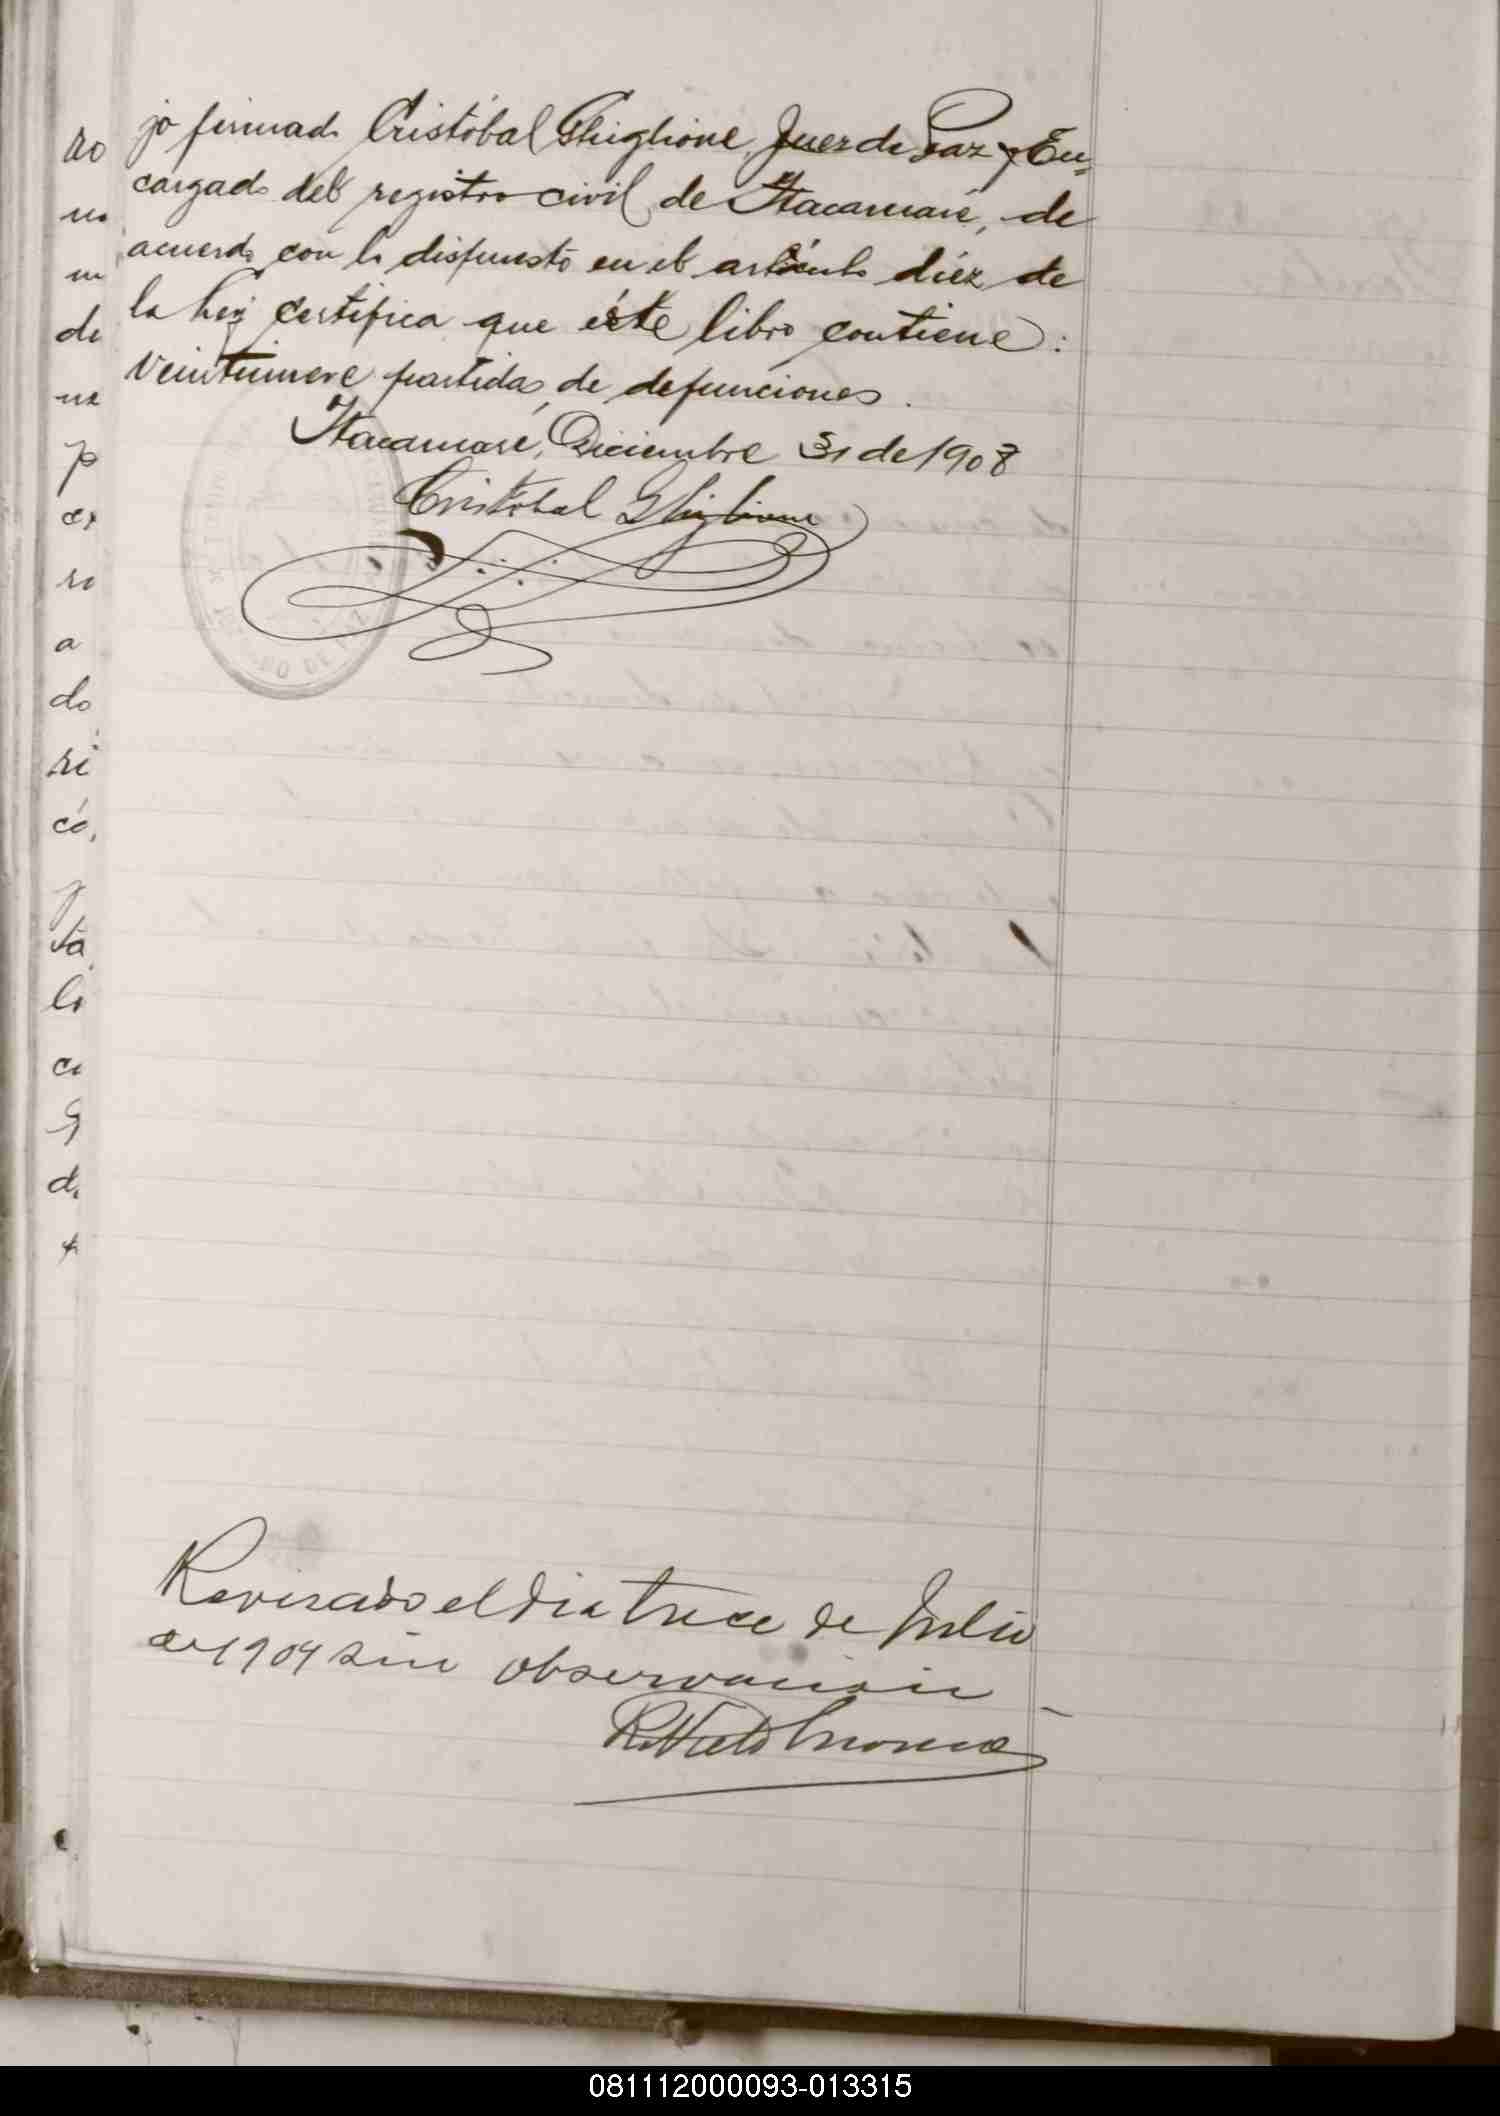 jo firmado Cristóbal Ghiglione, Juez de Paz y En-
cargado del registro civil de Itacaruaré, de
acuerdo con lo dispuesto en el artículo diez de
la ley certifica que éste libro contiene:
veintinueve partidas de defunciones.
Itacaruaré, Diciembre 31 de 1908
Cristóbal Ghiglione
Revisado el dia trece de Julio
de 1909 sin observación
ro
un
de
p
ro
a
do
ri
có,
y
ta
lo
ce
G
081112000093-013315